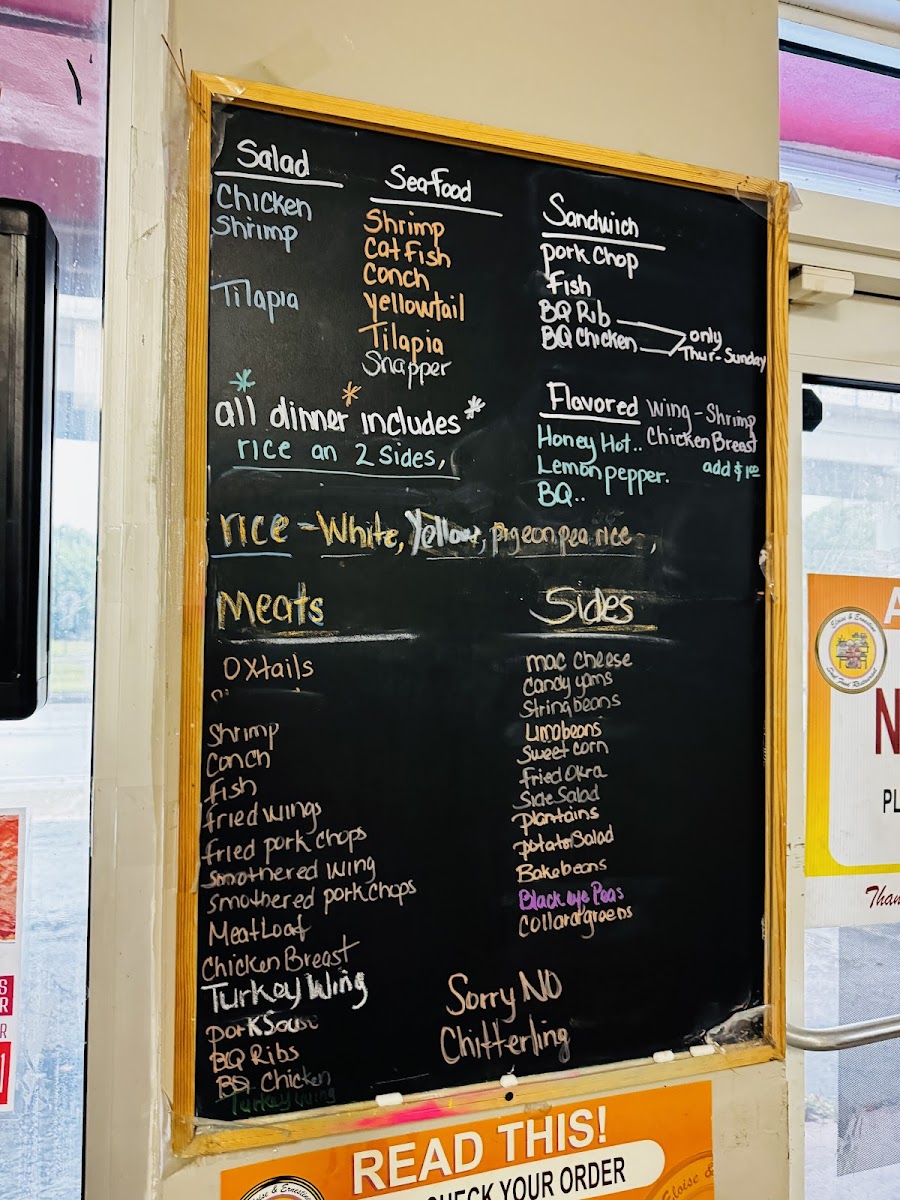 Salad
Chicken
Shrimp
Tilapia
Seafood
Shrimp
Catfish
Conch
yellowtail
Tilapia
Snapper
Sandwich
pork chop
Fish
BQ Rib
BQ Chicken
only
Thur-Sunday
* all dinner * includes *
rice an 2 sides,
Flavored Wing-Shrimp
Honey Hot.. Chicken Breast
Lemon pepper. add $1.00
BQ..
rice - White, Yellow, pigeon pea rice,
Meats
Oxtails
Shrimp
Conch
Fish
fried wings
fried pork chops
Smothered wing
Smothered porkchops
MeatLoaf
Chicken Breast
Turkey Wing
pork Souse
BQ Ribs
BQ Chicken
Turkey wing
Sides
mac cheese
candy yams
Stringbeans
Limabeans
Sweet corn
Fried Okra
Side Salad
plantains
potatoe Salad
Bakebeans
Black eye Peas
Collard greens
Sorry NO
Chitterling
READ THIS!
CHECK YOUR ORDER
Eloise & Ernestine
Eloise &
Eloise & Ernestine
Soul Food Restaurant
A
N
PL
Than
S
R
R